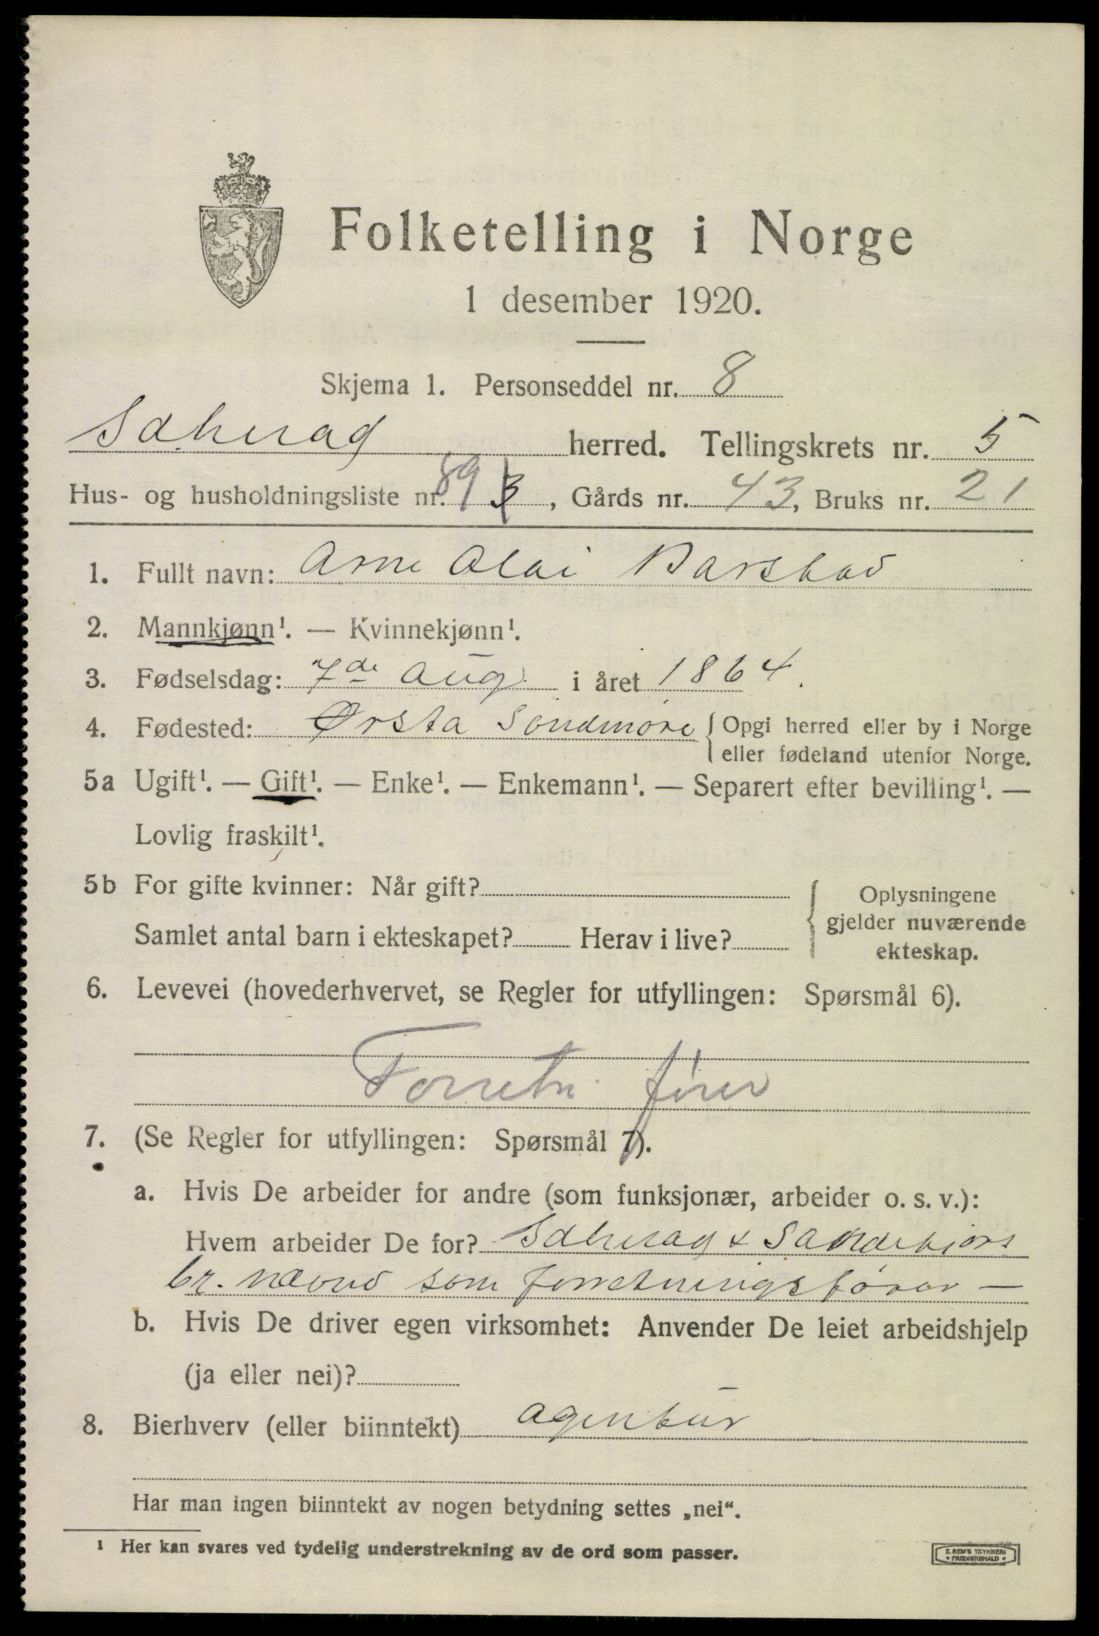 Folketelling i Norge
1 desember 1920.
Skjema 1. Personseddel nr. 8
herred. Tellingskrets nr. 5
Hus- og husholdningsliste nr. 89, Gårds nr. 43, Bruks nr. 21
1. Fullt navn: Arne Olai Barstad
2. Mannkjønn¹. — Kvinnekjønn¹.
3. Fødselsdag: 7de Aug. i året 1864.
4. Fødested: Ørsta Søndmøre { Opgi herred eller by i Norge
eller fødeland utenfor Norge.
5a Ugift¹. — Gift¹. — Enke¹. — Enkemann¹. — Separert efter bevilling¹. —
Lovlig fraskilt¹.
5b For gifte kvinner: Når gift?
Samlet antal barn i ekteskapet? Herav i live?
{ Oplysningene
gjelder nuværende
ekteskap.
6. Levevei (hovederhvervet, se Regler for utfyllingen: Spørsmål 6).
Forretn. fører
7. (Se Regler for utfyllingen: Spørsmål 7).
a. Hvis De arbeider for andre (som funksjonær, arbeider o. s. v.):
Hvem arbeider De for?
som forretningsfører —
b. Hvis De driver egen virksomhet: Anvender De leiet arbeidshjelp
(ja eller nei)?
8. Bierhverv (eller biinntekt) agentur
Har man ingen biinntekt av nogen betydning settes „nei“.
¹ Her kan svares ved tydelig understrekning av de ord som passer.
E. SEM'S TRYKKERI
• FREDRIKSHALD •